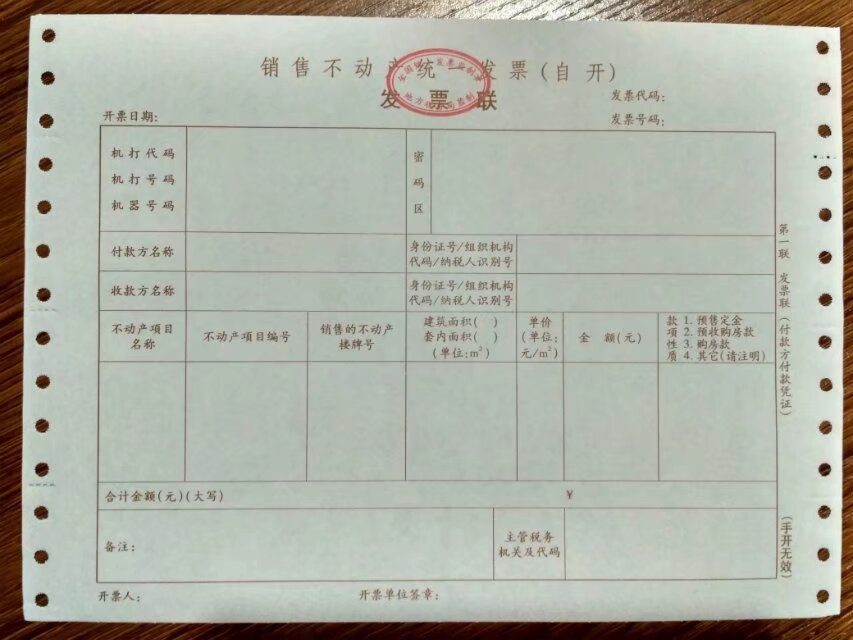 销售不动产统一发票(自开)
发票联
发票代码:
发票号码:
开票日期:
机打代码
机打号码
机器号码
密码区
付款方名称
身份证号/组织机构
代码/纳税人识别号
收款方名称
身份证号/组织机构
代码/纳税人识别号
不动产项目
名称
不动产项目编号
销售的不动产
楼牌号
建筑面积( )
套内面积( )
(单位:m²)
单价
(单位:
元/m²)
金 额(元)
款项性质
1. 预售定金
2. 预收购房款
3. 购房款
4. 其它(请注明)
合计金额(元)(大写)
¥
备注:
主管税务
机关及代码
开票人:
开票单位签章:
第一联 发票联(付款方付款凭证)
(手开无效)